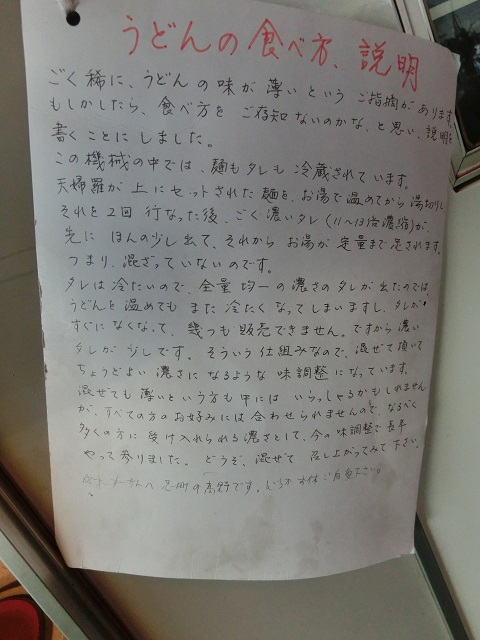 うどんの食べ方、説明
ごく稀に、うどんの味が薄いという ご指摘があります。
もしかしたら、食べ方を ご存知ないのかな、と思い、説明を
書くことにしました。
この機械の中では、麺もタレも 冷蔵されています。
天婦羅が 上にセットされた麺を、お湯で温めてから湯切りし
それを2回 行なった後、ごく濃いタレ(11〜13倍濃縮)が、
先に ほんの少し出て、それから お湯が 定量まで足されます。
つまり、混ざっていないのです。
タレは冷たいので、全量 均一の濃さのタレが出たのでは
うどんを温めても また 冷たくなってしまいますし、タレが
すぐになくなって、幾つも販売できません。ですから濃い
タレが少しです。そういう仕組みなので、混ぜて頂いて
ちょうどよい 濃さに なるような 味調整になっています。
混ぜても 薄いという方も中には いらっしゃるかもしれません
が、すべての方のお好みには合わせられませんので、なるべく
多くの方に 受け入れられる濃さとして、今の味調整で長年
やって参りました。どうぞ、混ぜて 召し上がってみて下さい。